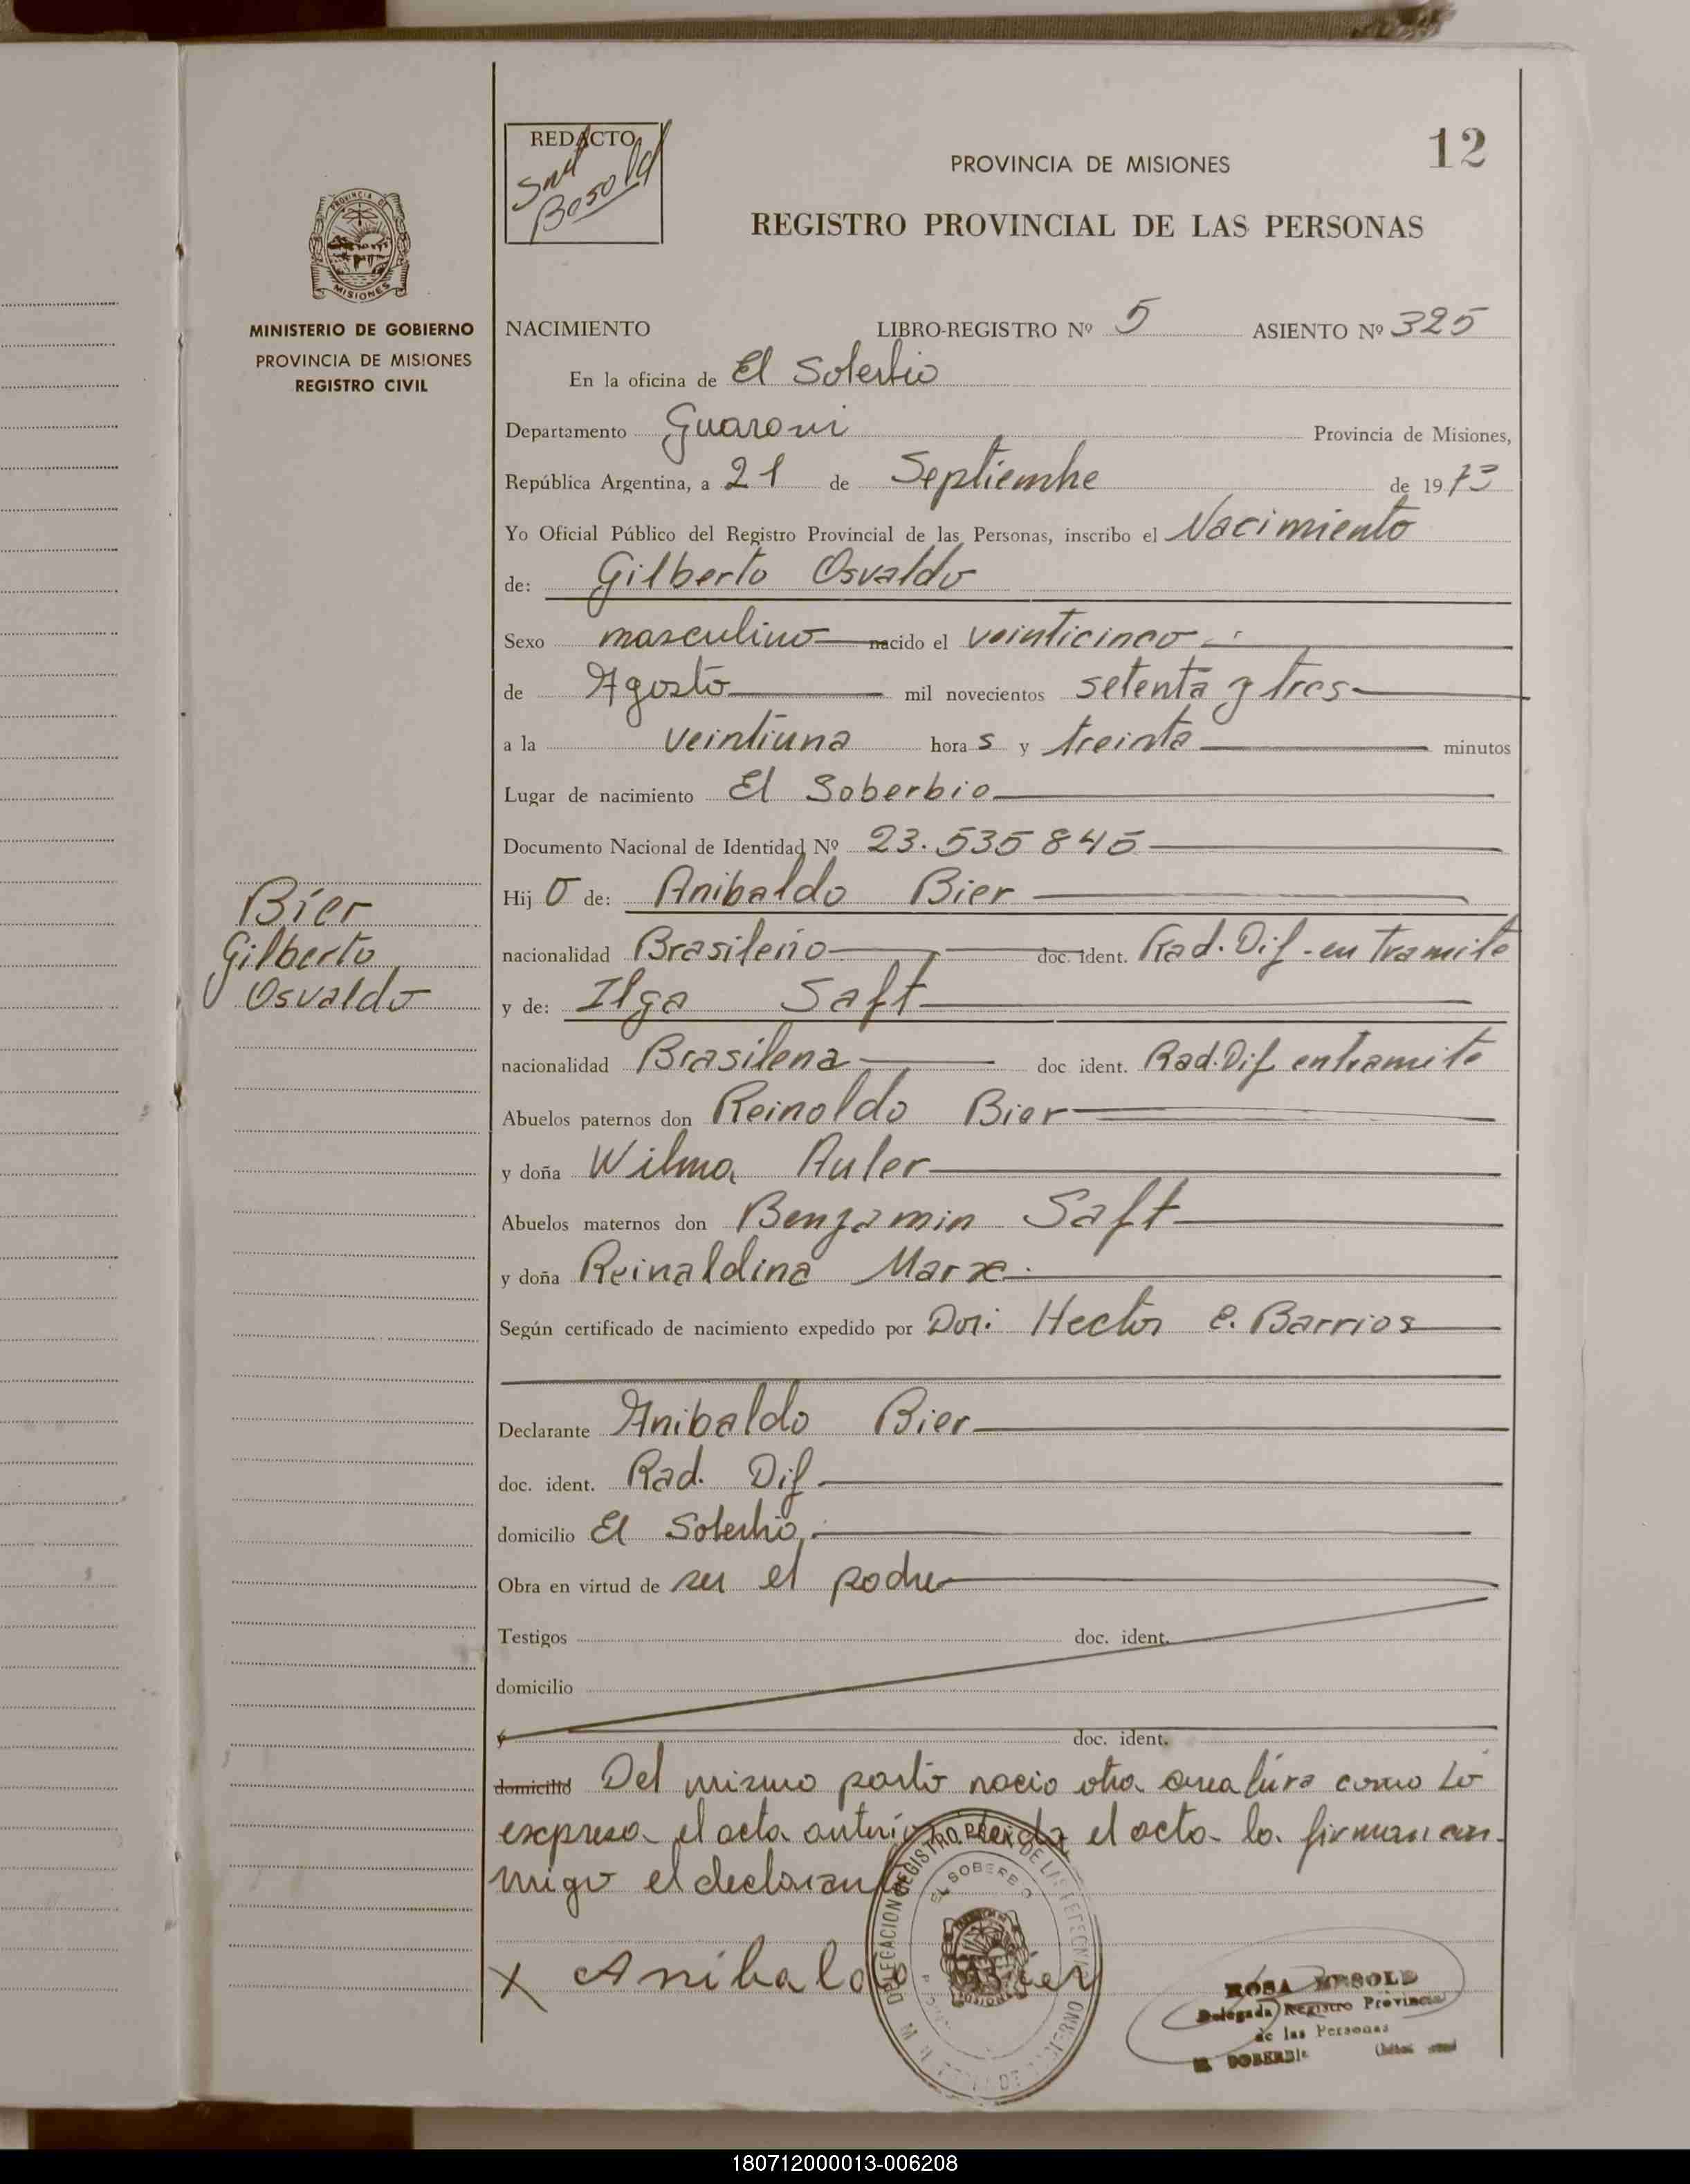 REDACTO
12
PROVINCIA DE MISIONES
REGISTRO PROVINCIAL DE LAS PERSONAS
PROVINCIA DE
MISIONES
MINISTERIO DE GOBIERNO
PROVINCIA DE MISIONES
REGISTRO CIVIL
NACIMIENTO LIBRO-REGISTRO Nº 5 ASIENTO Nº 325
En la oficina de El Soberbio
Departamento Guarani Provincia de Misiones,
República Argentina, a 21 de Septiembre de 1973
Yo Oficial Público del Registro Provincial de las Personas, inscribo el Nacimiento
de: Gilberto Osvaldo
Sexo masculino nacido el veinticinco
de Agosto mil novecientos setenta y tres
a la veintiuna horas y treinta minutos
Lugar de nacimiento El Soberbio
Documento Nacional de Identidad Nº 23.535845
Hijo de: Anibaldo Bier
Bier
Gilberto
Osvaldo
nacionalidad Brasileño doc. ident. Rad. Dif - en tramite
y de: Ilga Saft
nacionalidad Brasilena doc. ident. Rad. Dif en tramite
Abuelos paternos don Reinoldo Bier
y doña Wilma Auler
Abuelos maternos don Benjamin Saft
y doña Reinaldina Marx
Según certificado de nacimiento expedido por Hector E. Barrios
Declarante Anibaldo Bier
doc. ident. Rad. Dif
domicilio El Soberbio
Obra en virtud de ser el padre
Testigos doc. ident.
domicilio
y doc. ident.
domicilio Del mismo parto nacio otra creatura como lo
expresa el acta anterior. Leida el acta la firman con-
migo el declarante
DELEGACION REGISTRO PROV. DE LAS
EL SOBERBIO
X Anibaldo Bier
ROSA BESOLD
Delegada Registro Provincial
de las Personas
EL SOBERBIO
180712000013-006208